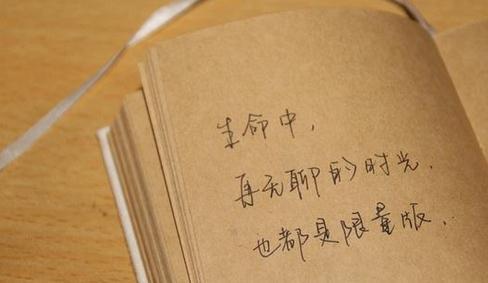 生命中，
再无聊的时光．
也都是限量版．